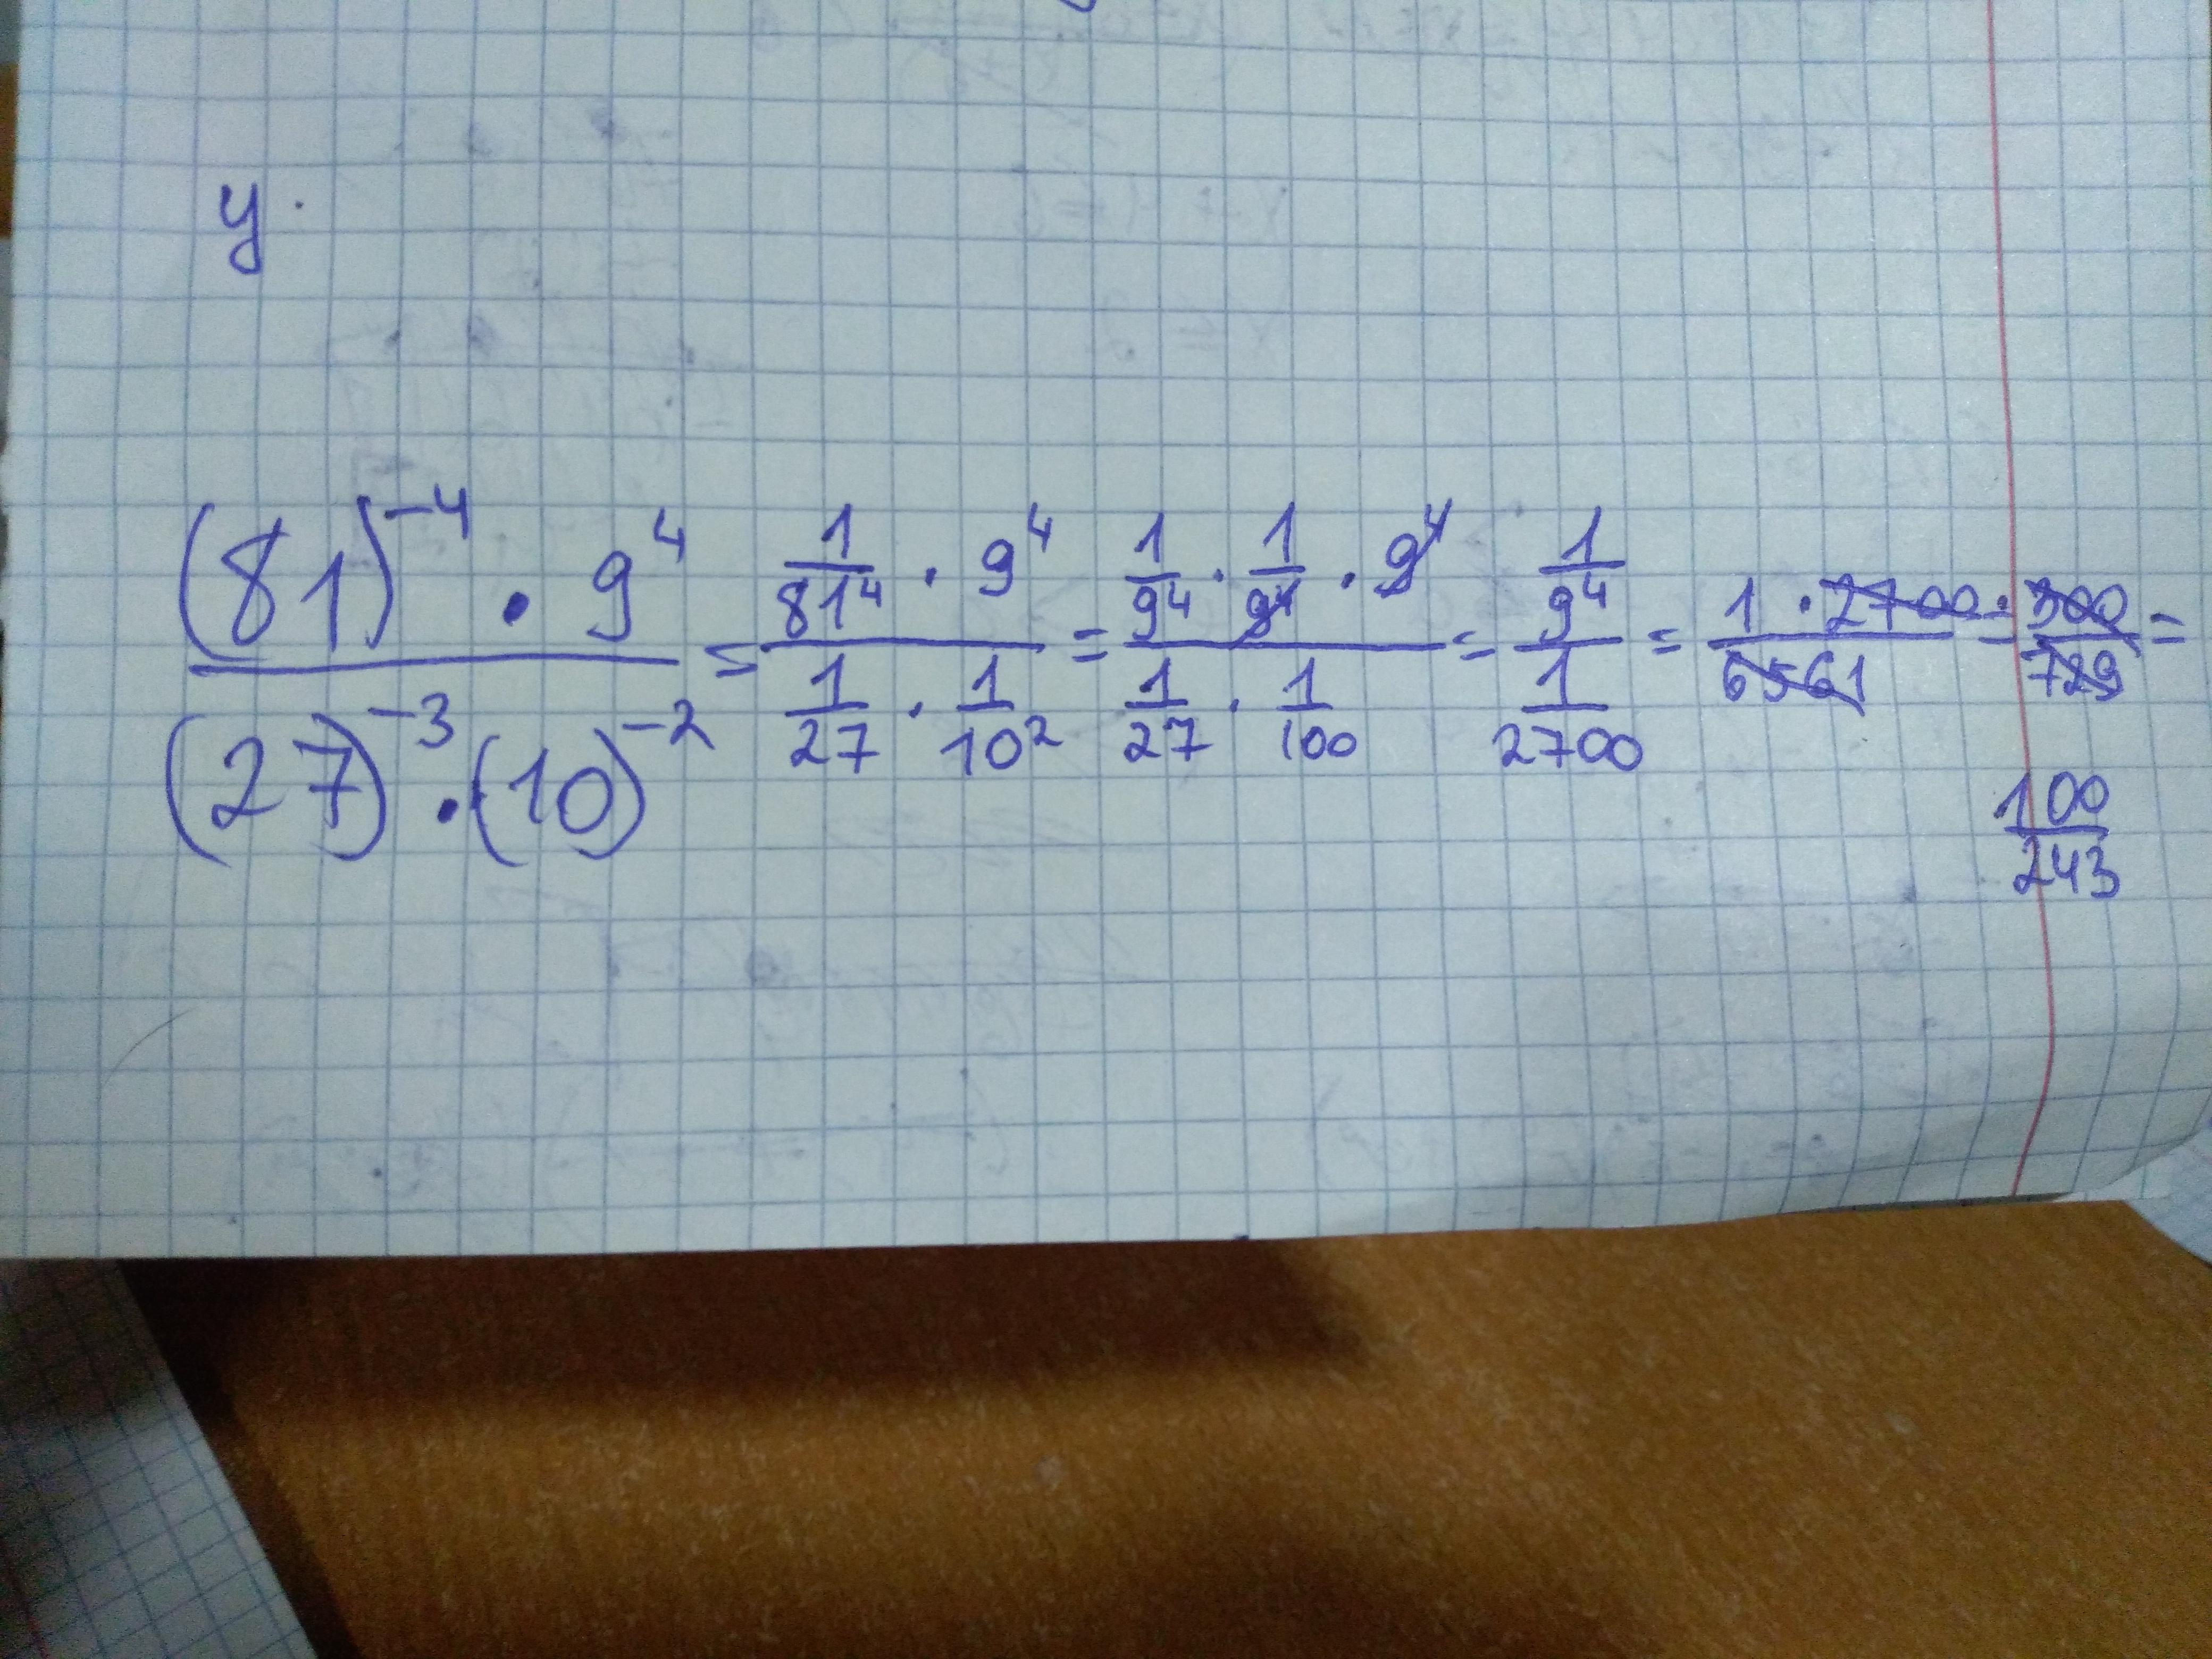 у.
(81)⁻⁴ · 9⁴ / (27)⁻³ · (10)⁻² = 1/81⁴ · 9⁴ / 1/27 · 1/10² = 1/9⁴ · 1/9⁴ · 9⁴ / 1/27 · 1/100 = 1/9⁴ / 1/2700 = 1 · 2700 / 6561 = 300/729 =
100/243